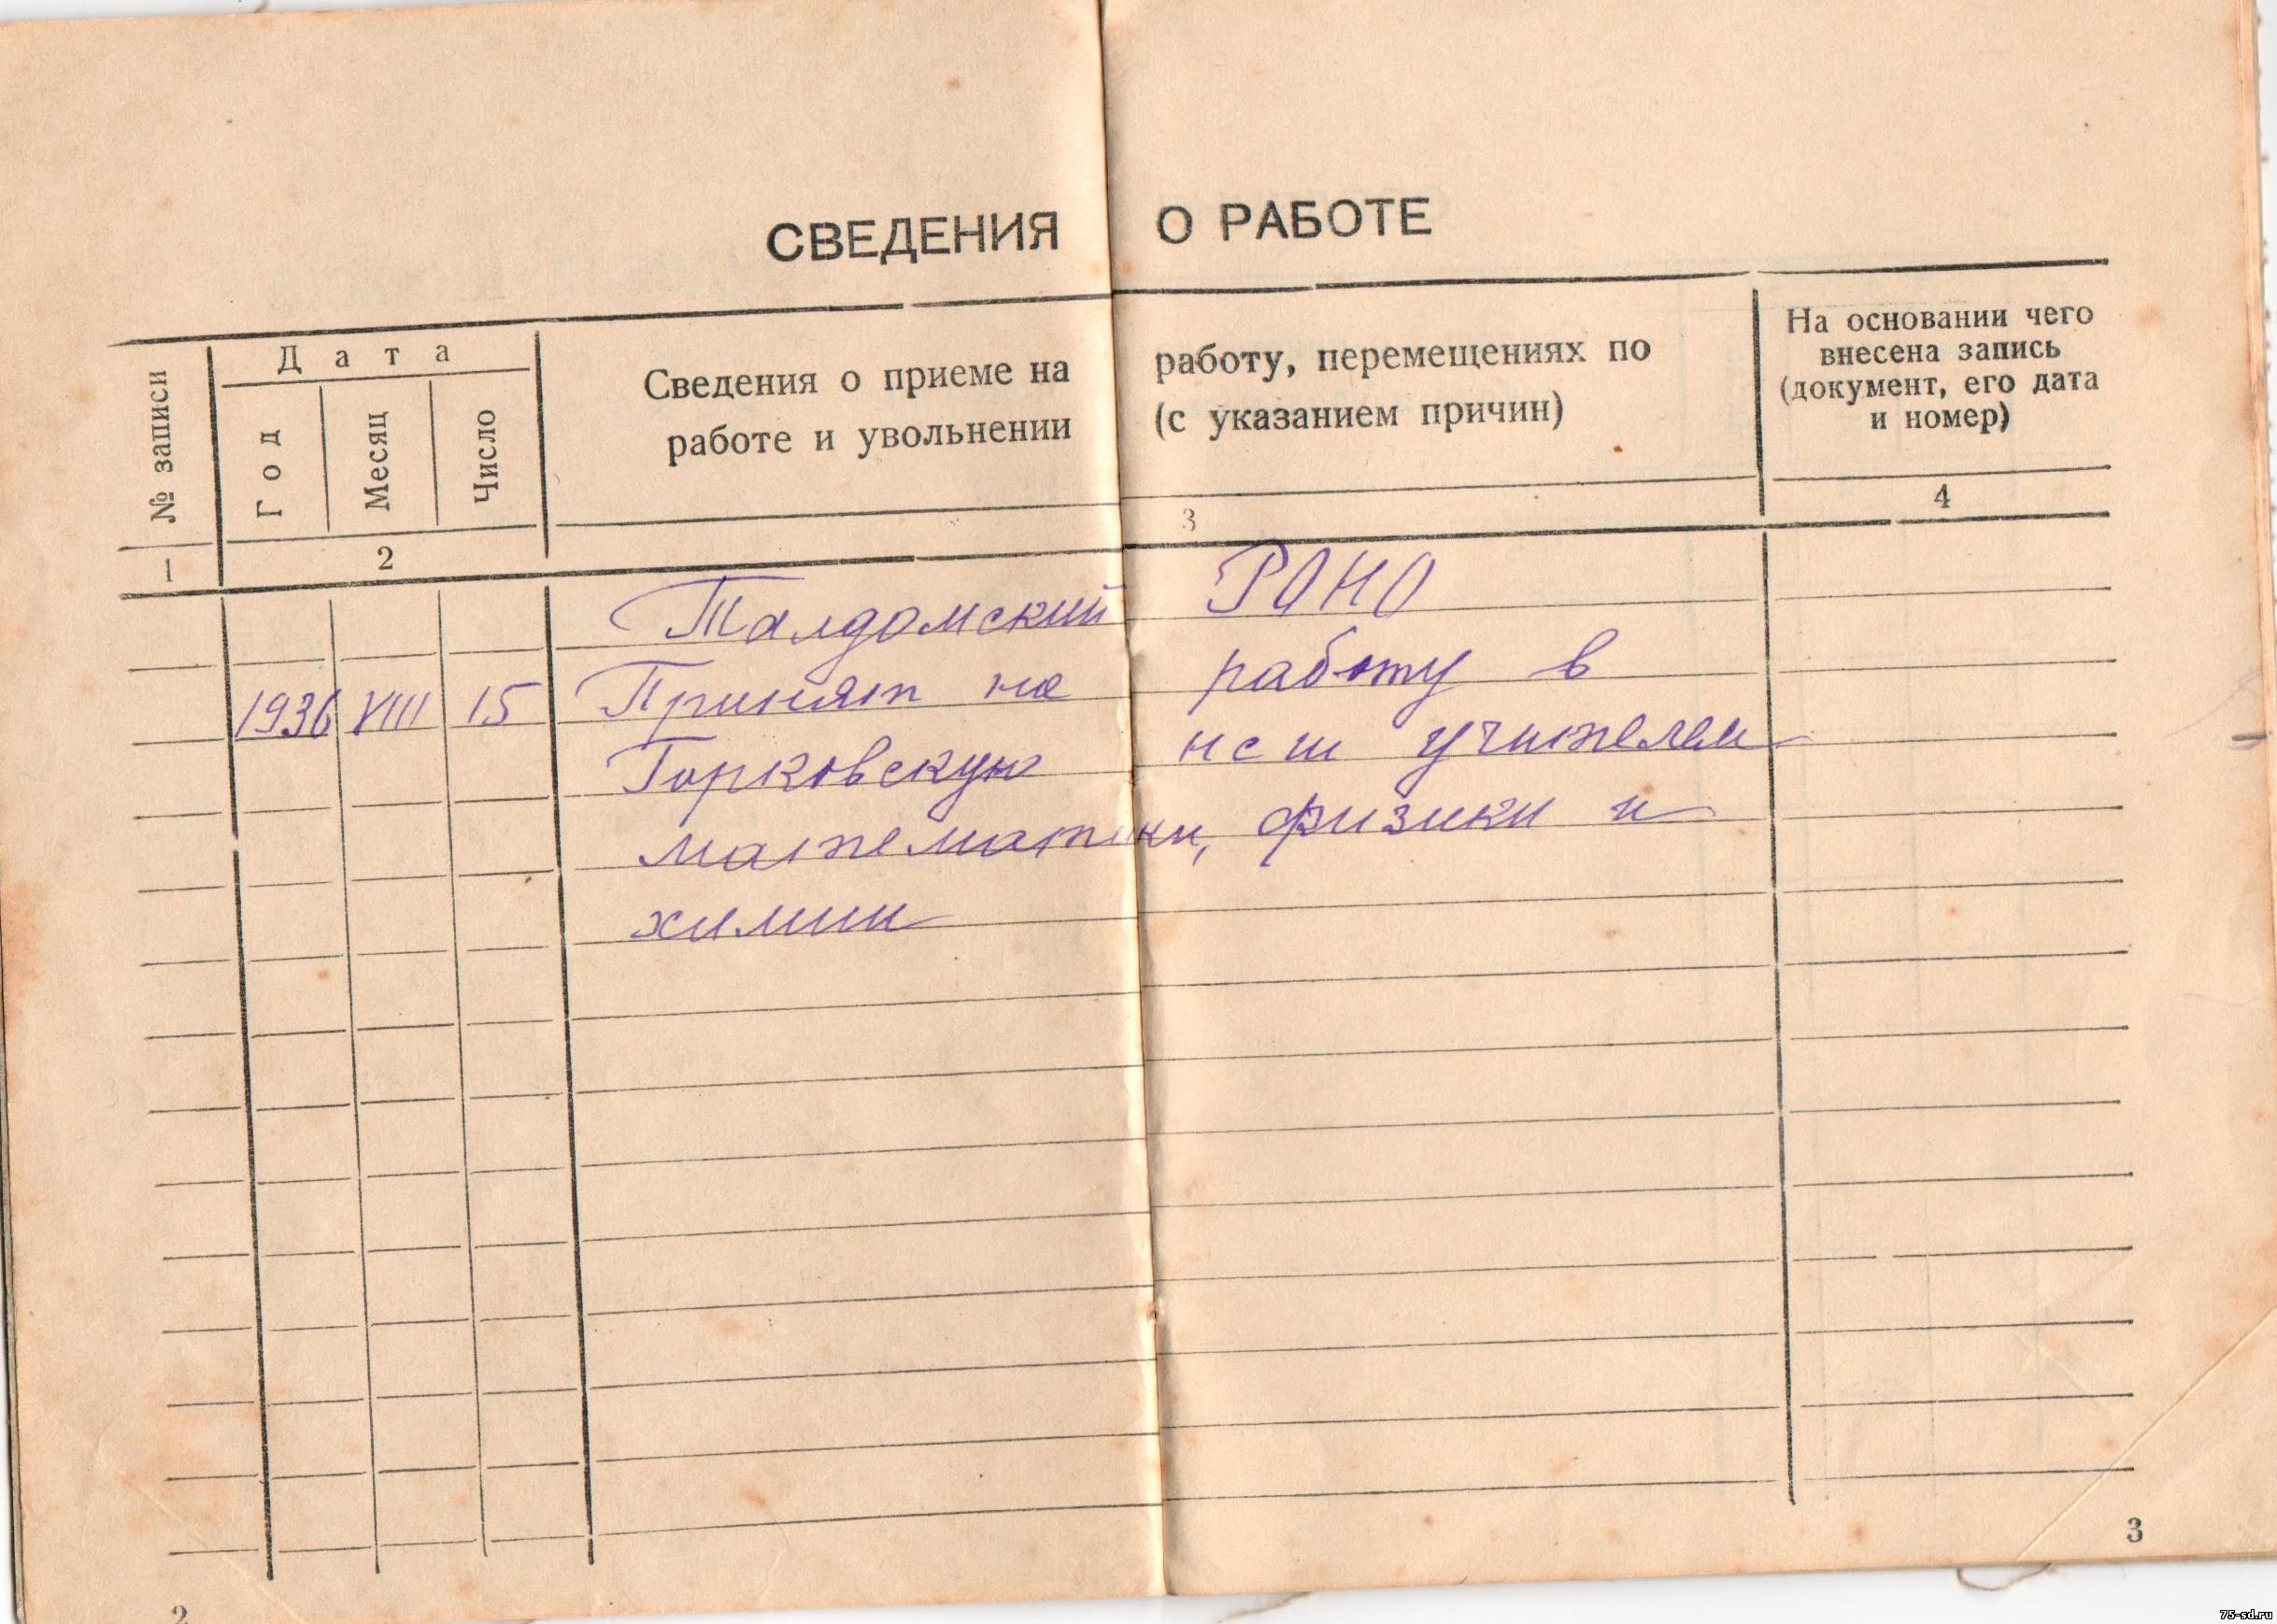 СВЕДЕНИЯ О РАБОТЕ
№ записи
Дата
Год
Месяц
Число
Сведения о приеме на работу, перемещениях по
работе и увольнении (с указанием причин)
На основании чего
внесена запись
(документ, его дата
и номер)
1 2 3 4
Талдомский РОНО
1936 VIII 15 Принят на работу в
Горковскую нсш учителем
математики, физики и
химии
2
3
75-sd.ru